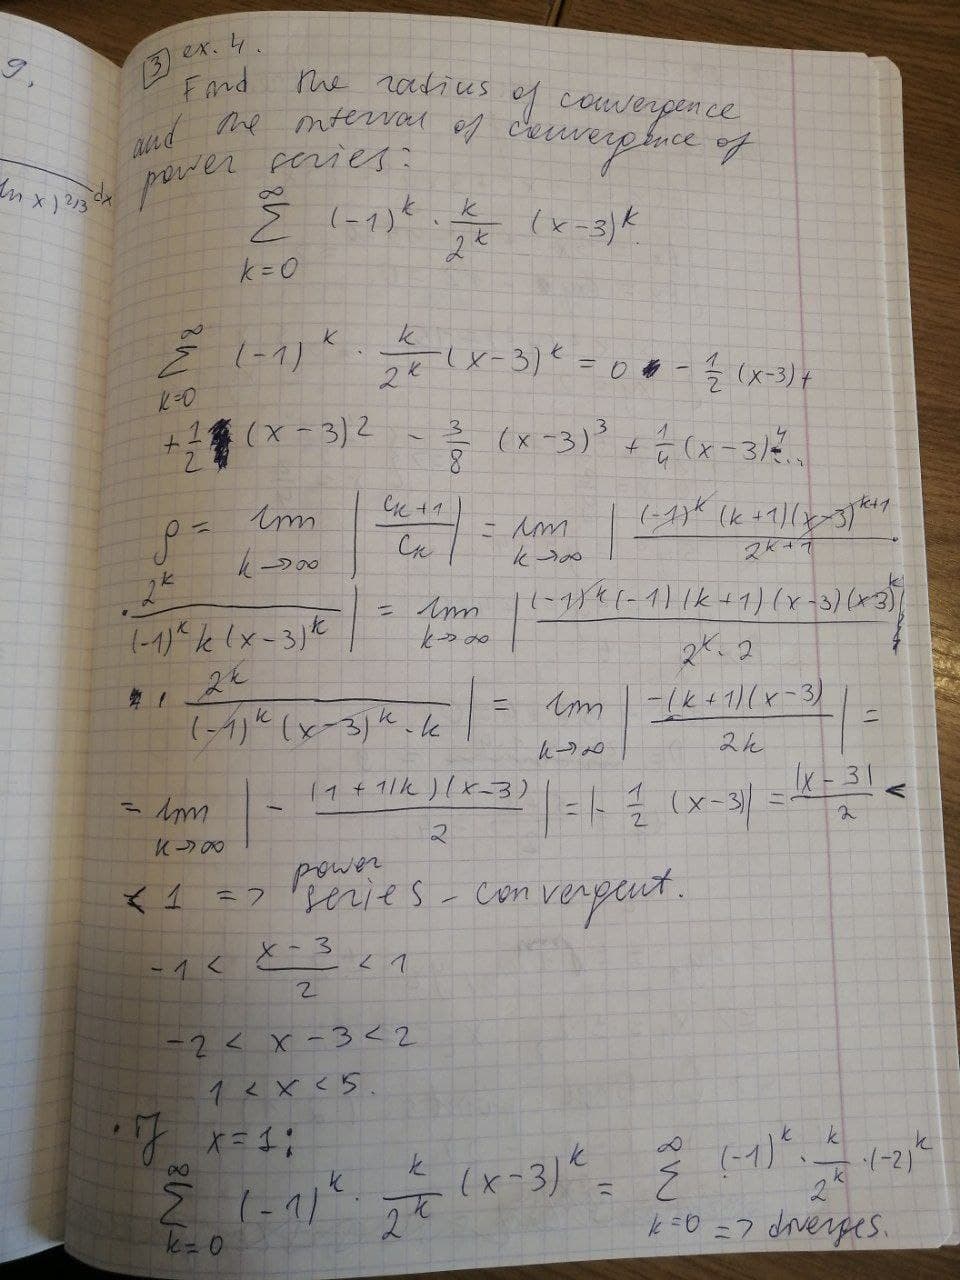 9.
(ln x)^{2/3} dx
[3] ex. 4.
Find the radius of convergence
and the interval of convergence of
power series:
\sum_{k=0}^{∞} (-1)^k · \frac{k}{2^k} (x-3)^k.
\sum_{k=0}^{∞} (-1)^k · \frac{k}{2^k} (x-3)^k = 0 - \frac{1}{2} (x-3) +
+ \frac{1}{2} (x-3)^2 - \frac{3}{8} (x-3)^3 + \frac{1}{4} (x-3)^4 ...
ρ = lim_{k→∞} | \frac{c_{k+1}}{c_k} | = lim_{k→∞} | \frac{(-1)^k (k+1)(x-3)^{k+1}}{2^{k+1}} ·
· \frac{2^k}{(-1)^k k (x-3)^k} | = lim_{k→∞} | \frac{(-1)^k (-1) (k+1) (x-3) (x-3)^k}{2^k · 2}
· \frac{2^k}{(-1)^k (x-3)^k · k} | = lim_{k→∞} | \frac{-(k+1)(x-3)}{2k} | =
= lim_{k→∞} | - \frac{(1+1/k)(x-3)}{2} | = |- \frac{1}{2} (x-3)| = \frac{|x-3|}{2} <
< 1 => power series - convergent.
-1 < \frac{x-3}{2} < 1
-2 < x - 3 < 2
1 < x < 5.
· If x = 1:
\sum_{k=0}^{∞} (-1)^k · \frac{k}{2^k} (x-3)^k = \sum_{k=0}^{∞} (-1)^k · \frac{k}{2^k} · (-2)^k
=> diverges.